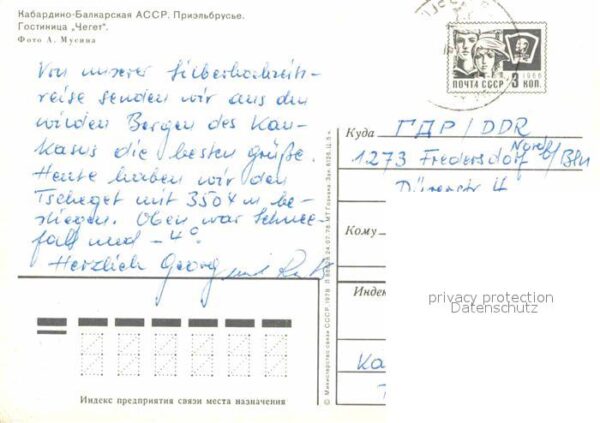 Кабардино-Балкарская АССР. Приэльбрусье.
Гостиница „Чегет".
Фото А. Мусина
Von unserer Silberhochzeits-
reise senden wir aus den
wilden Bergen des Kau-
kasus die besten Grüße.
Heute haben wir den
Tscheget mit 3504 m be-
stiegen. Oben war Schnee-
fall und -4°
Herzlich Georg und
ПОЧТА СССР 3 КОП.
1966
Куда ГДР/DDR
1273 Fredersdorf Nord b/Bln
Кому
Индек
privacy protection
Datenschutz
Ка
Индекс предприятия связи места назначения
© Министерство связи СССР. 1978